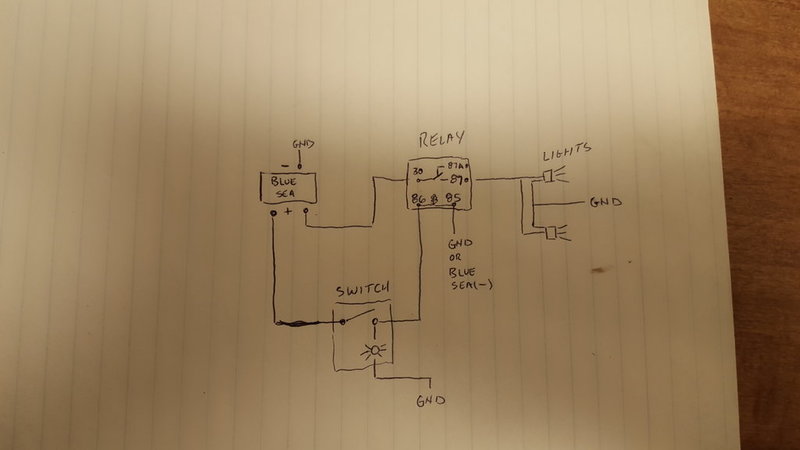 RELAY
GND
-
BLUE
SEA
+
30
87A
87
86
85
LIGHTS
GND
GND
OR
BLUE
SEA(-)
SWITCH
GND